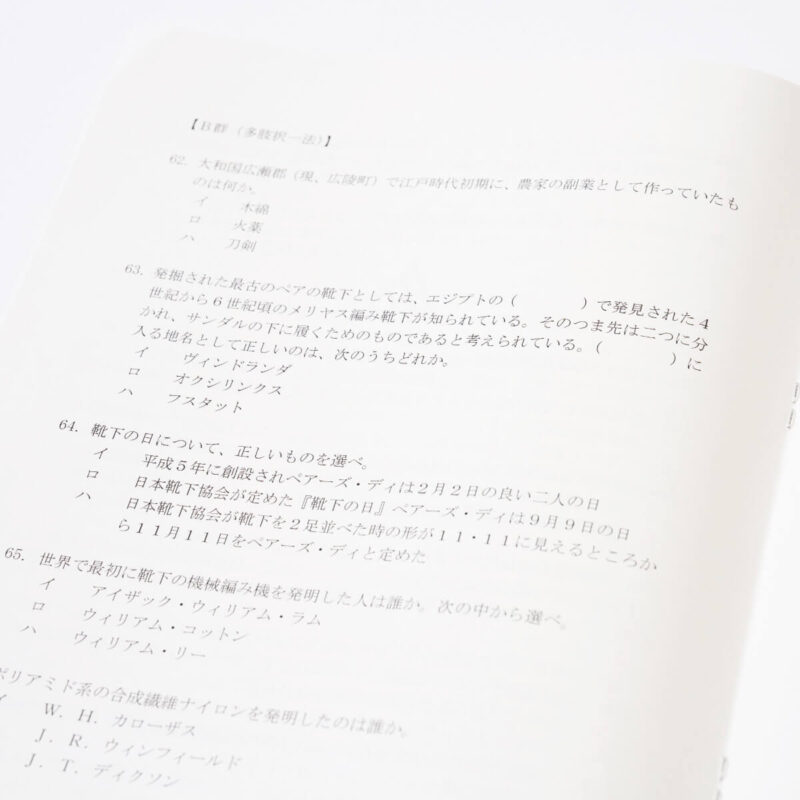 【B群（多肢択一法）】
62. 大和国広瀬郡（現、広陵町）で江戸時代初期に、農家の副業として作っていたも
のは何か。
イ 木綿
ロ 火薬
ハ 刀剣
63. 発掘された最古のペアの靴下としては、エジプトの（ ）で発見された４
世紀から６世紀頃のメリヤス編み靴下が知られている。そのつま先は二つに分
かれ、サンダルの下に履くためのものであると考えられている。（ ）に
入る地名として正しいのは、次のうちどれか。
イ ヴィンドランダ
ロ オクシリンクス
ハ フスタット
64. 靴下の日について、正しいものを選べ。
イ 平成５年に創設されペアーズ・ディは２月２日の良い二人の日
ロ 日本靴下協会が定めた『靴下の日』ペアーズ・ディは９月９日の日
ハ 日本靴下協会が靴下を２足並べた時の形が１１・１１に見えるところか
ら１１月１１日をペアーズ・ディと定めた
65. 世界で最初に靴下の機械編み機を発明した人は誰か。次の中から選べ。
イ アイザック・ウィリアム・ラム
ロ ウィリアム・コットン
ハ ウィリアム・リー
ポリアミド系の合成繊維ナイロンを発明したのは誰か。
イ Ｗ．Ｈ．カローザス
Ｊ．Ｒ．ウィンフィールド
Ｊ．Ｔ．ディクソン